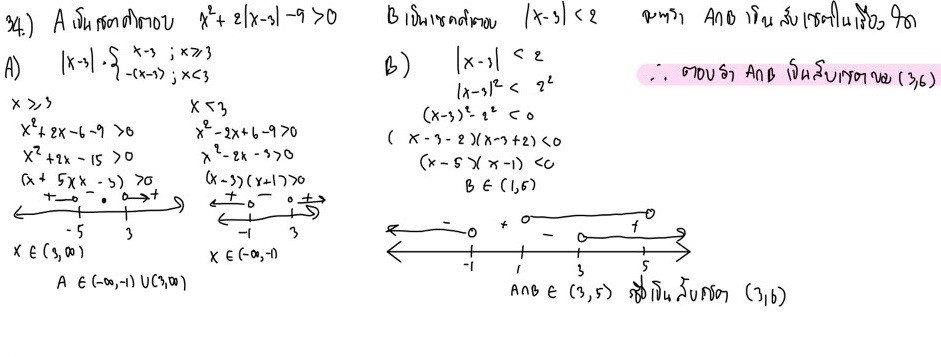 34.) A เป็นเซตคำตอบ x² + 2|x-3| -9 > 0 B เป็นเซตคำตอบ |x-3| < 2 จงหาว่า A∩B เป็นสับเซตใน
A) |x-3| { x-3 ; x ≥ 3
-(x-3) ; x < 3
x ≥ 3
x² + 2x - 6 - 9 > 0
x² + 2x - 15 > 0
(x + 5)(x - 3) > 0
+ - +
-5 3
x ∈ (3,∞)
x < 3
x² - 2x + 6 - 9 > 0
x² - 2x - 3 > 0
(x-3)(x+1) > 0
+ - +
-1 3
x ∈ (-∞,-1)
A ∈ (-∞,-1) ∪ (3,∞)
B) |x-3| < 2
|x-3|² < 2²
(x-3)² - 2² < 0
(x-3-2)(x-3+2) < 0
(x-5)(x-1) < 0
B ∈ (1,5)
- + - +
-1 1 3 5
A∩B ∈ (3,5) เป็นสับเซต (3,6)
∴ ตอบว่า A∩B เป็นสับเซตของ (3,6)